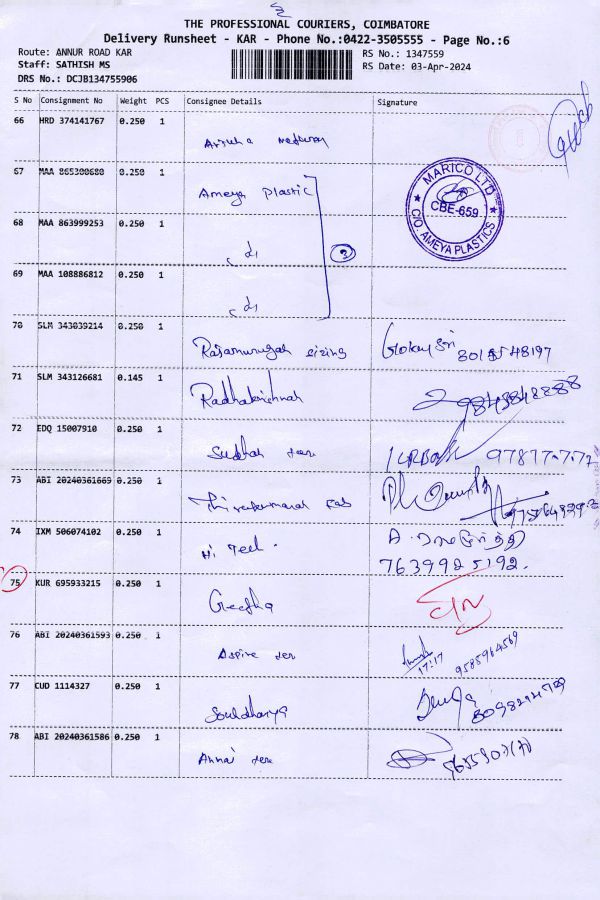 THE PROFESSIONAL COURIERS, COIMBATORE
Delivery Runsheet - KAR - Phone No.:0422-3505555 - Page No.:6
Route: ANNUR ROAD KAR
Staff: SATHISH MS
DRS No.: DCJB134755906
RS No.: 1347559
RS Date: 03-Apr-2024
S No Consignment No Weight PCS Consignee Details Signature
66 HRD 374141767 0.250 1
67 MAA 865300680 0.250 1 Ameya Plastic
MARICO LTD
CBE-659
C/O. AMEYA PLASTICS
68 MAA 863999253 0.250 1 do
2
69 MAA 108886812 0.250 1 do
70 SLM 343039214 0.250 1 Rajamurugan sizing
71 SLM 343126681 0.145 1 Radhakrishnan
9843848888
72 EDQ 15007910 0.250 1
73 ABI 20240361669 0.250 1
74 IXM 506074102 0.250 1 Hi Teel.
7639925192.
75 KUR 695933215 0.250 1 Geetha
76 ABI 20240361593 0.250 1 Aspire tex
17:17
9585964569
77 CUD 1114327 0.250 1 Soundharya
78 ABI 20240361586 0.250 1 Annai tex